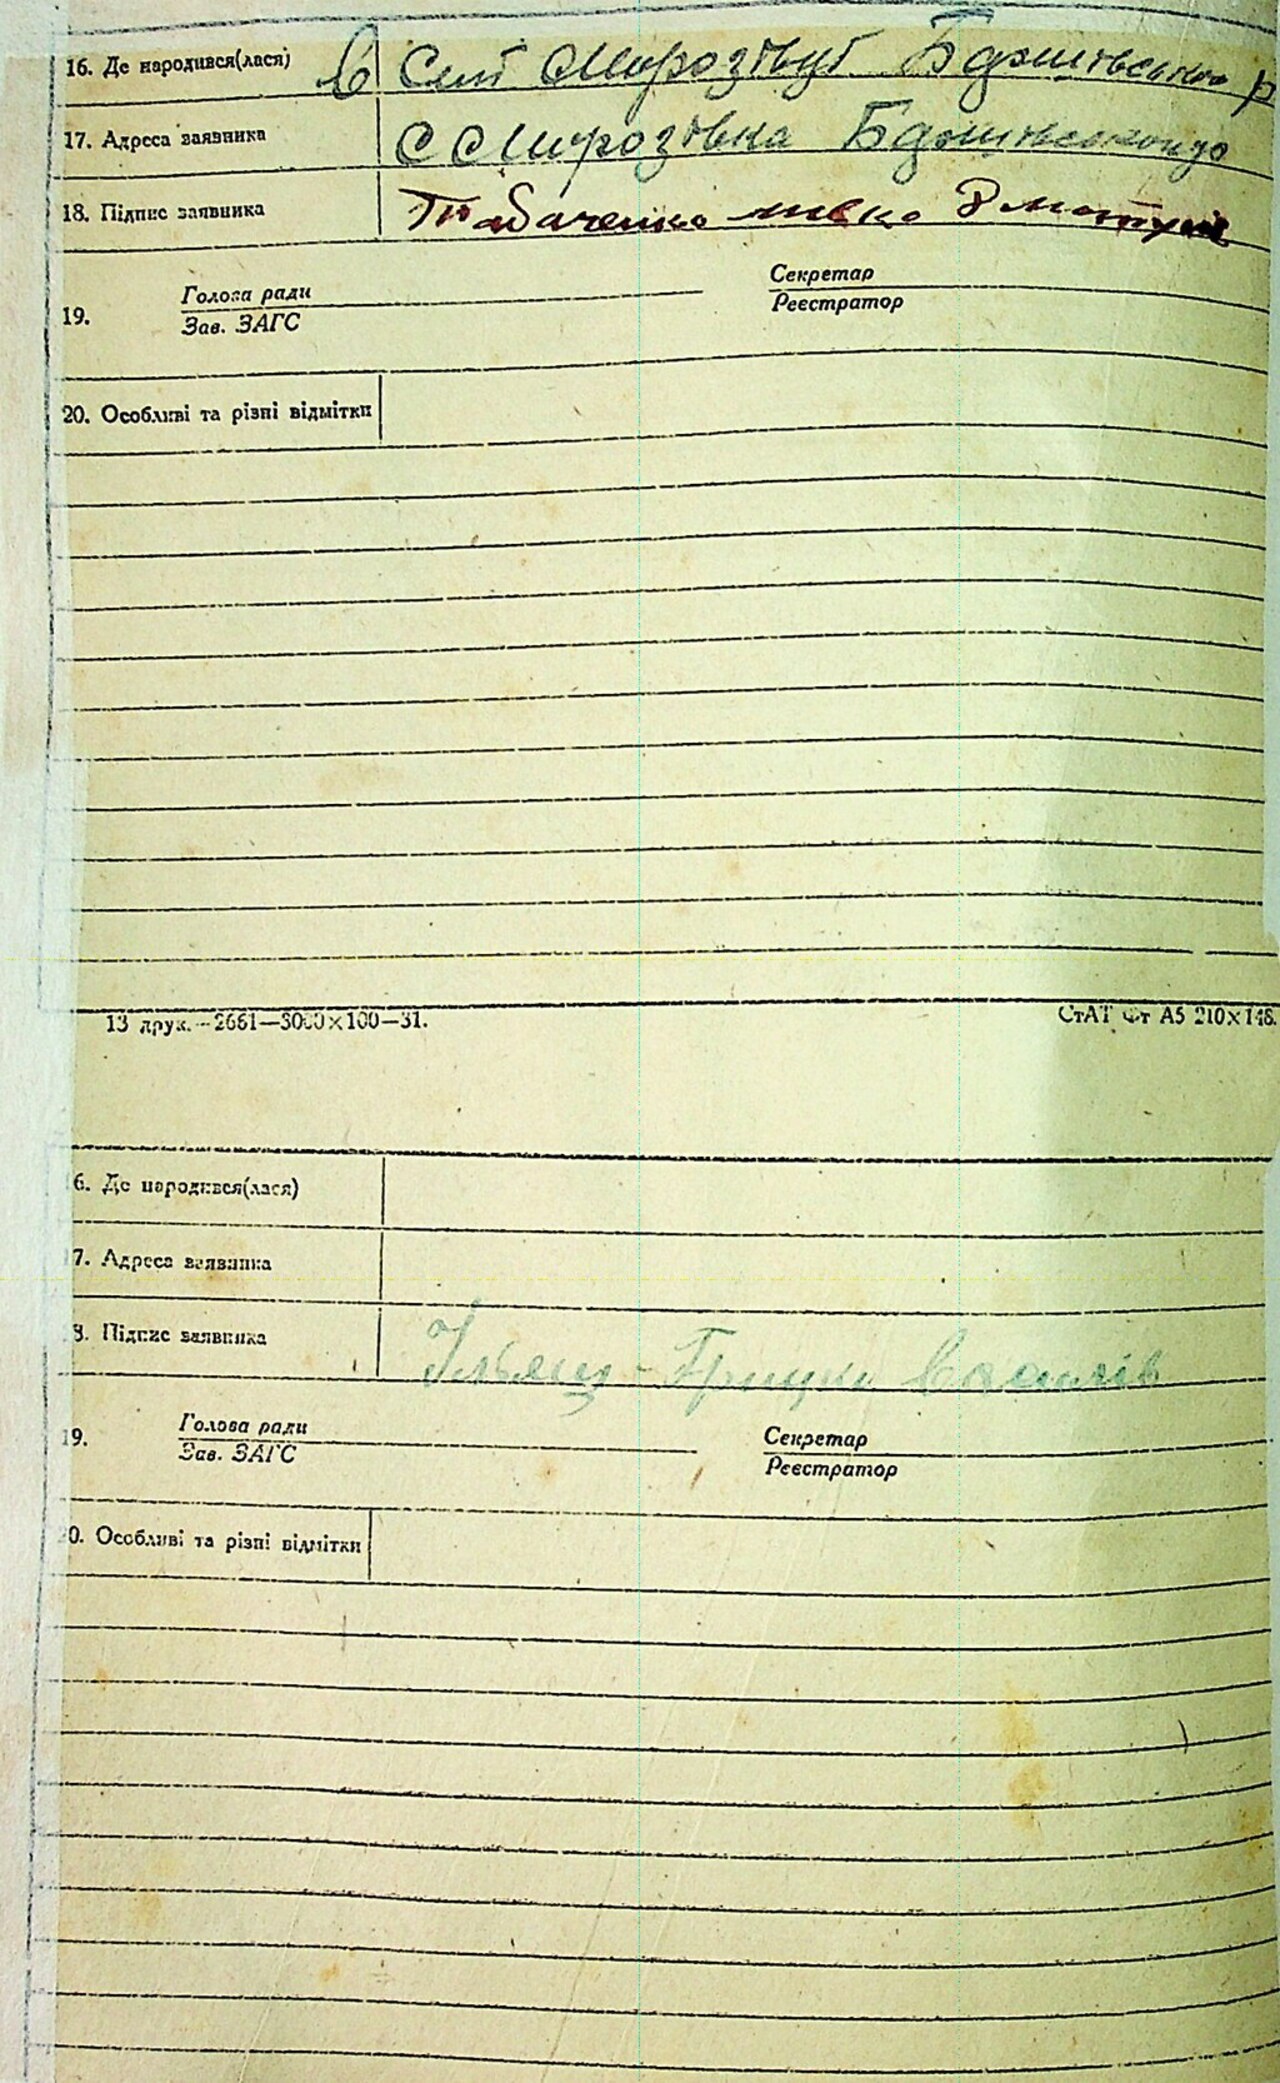 16. Де народився(лася) в Селі Морозівці
17. Адреса заявника С Морозівка
18. Підпис заявника Табаченко
Голова ради Секретар
19. Зав. ЗАГС Реєстратор
20. Особливі та різні відмітки
13 друк.—2661—3000×100—31. СтАТ Фт А5 210×148.
6. Де народився(лася)
7. Адреса заявника
8. Підпис заявника Ільяш Грицко
Голова ради Секретар
19. Зав. ЗАГС Реєстратор
0. Особливі та різні відмітки